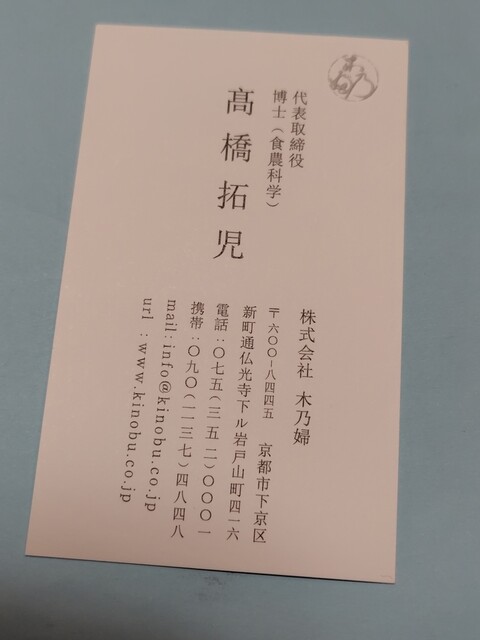 代表取締役
博士（食農科学）
髙橋拓児
株式会社 木乃婦
〒六〇〇-八四四五 京都市下京区
新町通仏光寺下ル岩戸山町四一六
電話:〇七五(三五二)〇〇〇一
携帯:〇九〇(一一三七)四八四八
mail:info@kinobu.co.jp
url :www.kinobu.co.jp